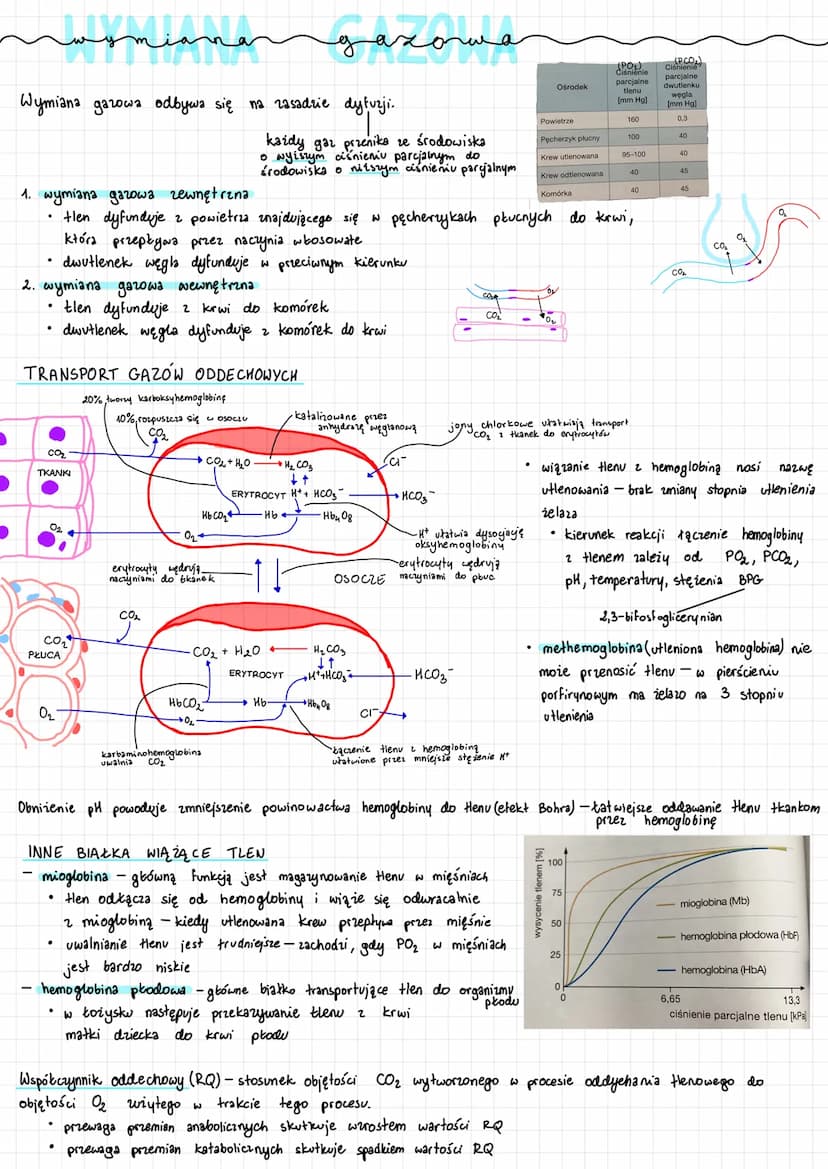 wymiana gazowa
WYMIANA GAZOWA
Wymiana gazowa odbywa się na zasadzie dyfuzji.
każdy gaz przenika ze środowiska
o wyższym ciśnieniu parcjalnym do
środowiska o niższym ciśnieniu parcjalnym
(PO₂) (PCO₂)
Ośrodek | Ciśnienie parcjalne tlenu [mm Hg] | Ciśnienie parcjalne dwutlenku węgla [mm Hg]
Powietrze 160 0,3
Pęcherzyk płucny 100 40
Krew utlenowana 95-100 40
Krew odtlenowana 40 45
Komórka 40 45
1. wymiana gazowa zewnętrzna
• tlen dyfunduje z powietrza znajdującego się w pęcherzykach płucnych do krwi,
która przepływa przez naczynia włosowate
• dwutlenek węgla dyfunduje w przeciwnym kierunku
2. wymiana gazowa wewnętrzna
• tlen dyfunduje z krwi do komórek
• dwutlenek węgla dyfunduje z komórek do krwi
CO₂ O₂ O₂
CO₂
CO₂ O₂
CO₂ O₂
TRANSPORT GAZÓW ODDECHOWYCH
20% tworzy karboksyhemoglobinę
10% rozpuszcza się w osoczu
CO₂
katalizowane przez
anhydrazę węglanową
jony chlorkowe ułatwiają transport
CO₂ z tkanek do erytrocytów
CO₂
TKANKI
O₂
CO₂ + H₂O H₂CO₃
Cl⁻
ERYTROCYT H⁺ + HCO₃⁻ HCO₃⁻
HbCO₂ Hb Hb₄O₈
O₂
H⁺ ułatwia dysocjację
oksyhemoglobiny
erytrocyty wędrują
naczyniami do tkanek
OSOCZE
erytrocyty wędrują
naczyniami do płuc
CO₂
CO₂
PŁUCA
O₂
CO₂ + H₂O H₂CO₃
ERYTROCYT H⁺+HCO₃⁻ HCO₃⁻
HbCO₂ Hb Hb₄O₈
O₂ Cl⁻
karbaminohemoglobina
uwalnia CO₂
łączenie tlenu z hemoglobiną
ułatwione przez mniejsze stężenie H⁺
• wiązanie tlenu z hemoglobiną nosi nazwę
utlenowania — brak zmiany stopnia utlenienia
żelaza
• kierunek reakcji łączenie hemoglobiny
z tlenem zależy od PO₂, PCO₂,
pH, temperatury, stężenia BPG
2,3-bifosfoglicerynian
• methemoglobina (utleniona hemoglobina) nie
może przenosić tlenu — w pierścieniu
porfirynowym ma żelazo na 3 stopniu
utlenienia
Obniżenie pH powoduje zmniejszenie powinowactwa hemoglobiny do tlenu (efekt Bohra) — łatwiejsze oddawanie tlenu tkankom
przez hemoglobinę
INNE BIAŁKA WIĄŻĄCE TLEN
- mioglobina — główną funkcją jest magazynowanie tlenu w mięśniach
• tlen odłącza się od hemoglobiny i wiąże się odwracalnie
z mioglobiną — kiedy utlenowana krew przepływa przez mięśnie
• uwalnianie tlenu jest trudniejsze — zachodzi, gdy PO₂ w mięśniach
jest bardzo niskie
- hemoglobina płodowa — główne białko transportujące tlen do organizmu
płodu
• w łożysku następuje przekazywanie tlenu z krwi
matki dziecka do krwi płodu
wysycenie tlenem [%]
100
75
50
25
0
mioglobina (Mb)
hemoglobina płodowa (HbF)
hemoglobina (HbA)
0 6,65 13,3
ciśnienie parcjalne tlenu [kPa]
Współczynnik oddechowy (RQ) — stosunek objętości CO₂ wytworzonego w procesie oddychania tlenowego do
objętości O₂ zużytego w trakcie tego procesu.
• przewaga przemian anabolicznych skutkuje wzrostem wartości RQ
• przewaga przemian katabolicznych skutkuje spadkiem wartości RQ